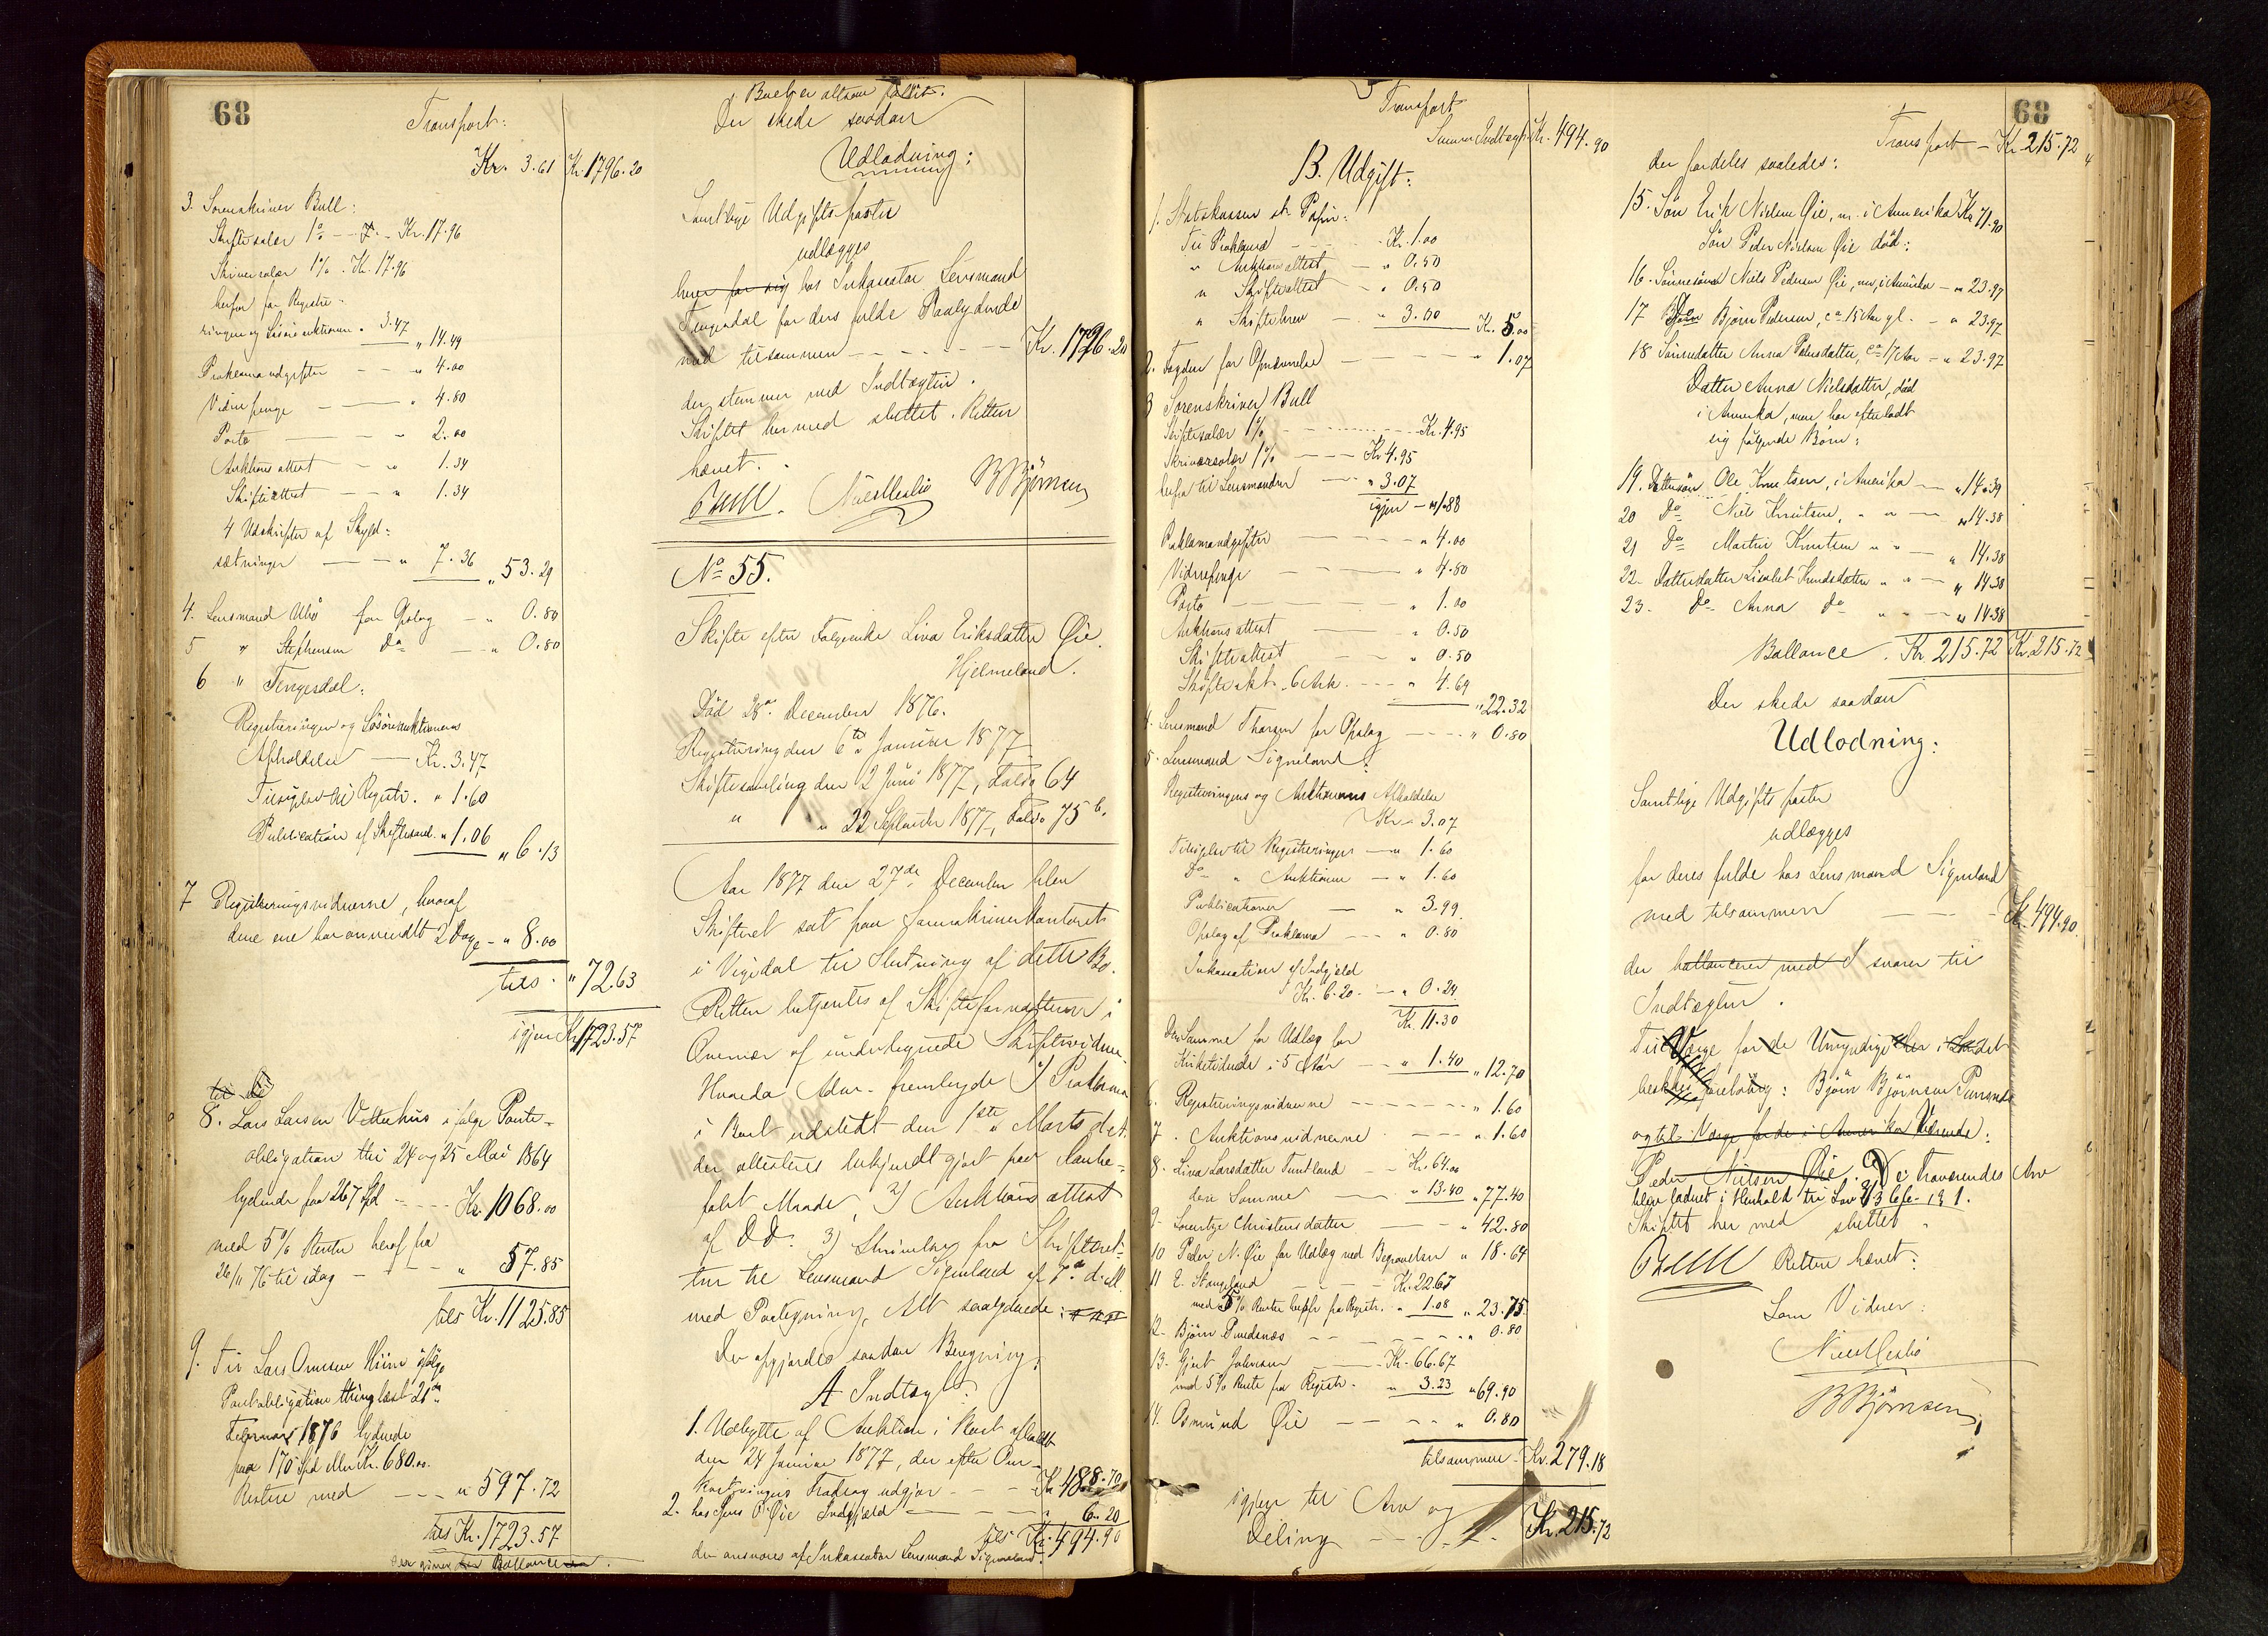 68
Transport:
Kr. 3.61 Kr. 1796.20
3. Sorenskriver Bull:
Skiftesalær 1% - Kr. 17.96
Skriversalær 1% . Kr. 17.96
herfor for Registre-
ringen og Løsøreauktionen " 3.47 " 14.49
Proklamaudgifter - - " 4.00
Vidnepenge - - " 4.80
Porto - - " 2.00
Auktionsattest - " 1.34
Skifteattest - - " 1.34
4 Udskrifter af Skyld-
sætninger - - " 7.36 " 53.29
4. Lensmand for Opslag - " 0.80
5 " Stephensen Do - " 0.80
6 " Tengesdal:
Registreringen og Løsøreauktionens
Afholdelse - Kr. 3.47
Tilsigelse til Registr. " 1.60
Publication af Skiftesaml. " 1.06 " 6.13
7 Registreringsvidnerne, hvoraf
dene ene har anvendt 2 Dage - " 8.00
tils. " 72.63
igjen Kr. 1723.57
8. Lars Larsen Vetrhus i følge Pante-
obligation thl 24 og 25 Mai 1864
lydende paa 267 Spd - - - Kr. 1068.00
med 5% Renter heraf fra
26/11 76 til idag - - - " 57.85
tils Kr. 1125.85
9. Til Lars Omesen Hiim ifølge
Pantobligation thinglæst 21de
Februar 1876 lydende
paa 170 Spd eller Kr. 680.00.
Resten med - - - " 597.72
tils Kr. 1723.57
Ballance
Boet er altsaa fallit.
Der skede saadan
Udlodning:
Samtlige Udgiftsposter
udlægges
hver for sig hos Inkassator Lensmand
Tengesdal for ders fulde Paalydende
med tilsammen - - - - - Kr. 1796.20
der stemmer med Indtægten.
Skiftet hermed sluttet. Retten
hævet.
Bull. Niels Nesbø B Bjørnsen
No 55.
Skifte efter Folgemke Liva Eriksdatter Øie.
Hjelmeland.
Død 28de December 1876.
Registrering den 6te Januar 1877
Skiftesamling den 12 Juni 1877, Folio 64
" " 22 September 1877, Folio 75 b.
Aar 1877 den 27de December blev
Skifteret sat paa Sorenskriverkontoret
i Vigedal til Slutning af dette Bo.
Retten betjentes af Skifteforvalteren i
Overvær af undertegnede Skiftevidner.
Hvorda Adm. fremlagde 1) Proklama
i Boet udstedt den 1ste Marts d.A.
der attesteres bekjendtgjort paa lovbe-
falet Maade, 2) Auktionsattest
af D.D. 3) Skrivelse fra Skifteret-
ten til Lensmand Sigmeland af 7de d.M.
med Paategning, Alt saalydende:
Der afgjordes saadan Beregning:
A Indtægt:
1. Udbytte af Auktion i Boet afholdt
den 24 Januar 1877, der efter Om-
kostningers Fradrag udgjør - - Kr. 488.70
2. hos Jens O. Øie Indgjæld - - " 6.20
tils Kr. 494.90
der ansvares af Inkassator Lensmand Sigmeland.
Transport
Summa Indtægt Kr. 494.90
B. Udgift:
1. Statskassen st. Papir:
Til Proklama - - - - Kr. 1.00
" Auktionsattest - " 0.50
" Skifteattest - " 0.50
" Skiftebrev - " 3.00 Kr. 5.00
2. Fogden for Opnævnelse - - - " 1.07
3 Sorenskriver Bull
Skiftesalær 1% - - - Kr. 4.95
Skriversalær 1% - - - Kr 4.95
herfra til Lensmanden - " 3.07
igjen - " 1.88
Proklamaudgifter - - - " 4.00
Vidnepenge - - - " 4.80
Porto - - - " 1.00
Auktionsattest - " 0.50
Skifteattest - - " 0.50
Skifteakt. 6 Ark. - - " 4.69
" 22.32
4. Lensmand Thorsen for Opslag - - - " 0.80
5. Lensmand Sigmeland:
Registreringens og Auktionens Afholdelse
Kr. 3.07
Tilsigelse til Registreringen - " 1.60
Do " Auktionen - " 1.60
Publicationer - " 3.99
Opslag af Proklama - - " 0.80
Inkassation af Indgjæld
Kr. 6.20. - " 0.24
Kr. 11.30
Den Samme for Udlæg for
Kirketidende i 5 Aar - - " 1.40 " 12.70
6. Registreringsvidnerne - - - - " 1.60
7. Auktionsvidnerne - - - " 1.60
8. Liva Larsdatter Tuntland - - Kr. 64.00
den Samme - " 13.40 " 77.40
9. Sverige Christensdatter - - " 42.80
10 Peder N. Øie for Udlæg ved Begravelsen " 18.64
11 E. Stangeland - - - Kr. 22.67
med 5% Renter herfor fra Registr. " 1.08 " 23.75
12. Bjørn Pundsnæs - - - - - " 0.80
13. Gjert Johnsen - - Kr. 66.67
med 5% Rente fra Registr. " 3.23 " 69.90
14. Osmund Øie - - - - " 0.80
tilsammen - Kr. 279.18
igjen til Arv og
Deling - - - Kr. 215.72
68
Transport - Kr. 215.72
der fordeles saaledes:
15. Søn Erik Nielsen Øie, m. i Amerika Kr. 71.90
Søn Peder Nielsen Øie død:
16. Sønnesøn Niels Pedersen Øie, m, i Amerika - " 23.97
17 Do Bjørn Pedersen, ca 15 Aar gl. - " 23.97
18 Sønnedatter Anna Pedersdatter, ca 17 Aar - " 23.97
Datter Anna Nielsdatter, død
i Amerika, men har efterladt
sig følgende Børn:
19. Dattersøn Ole Knutsen, i Amerika - " 14.39
20 Do Niels Knutsen, " " - " 14.38
21 Do Martin Knutsen " " - " 14.38
22. Datterdatter Lisabet Knudsdatter " " - " 14.38
23. Do Anna Do " " - " 14.38
Ballance. Kr. 215.72 Kr. 215.72
Der skede saadan
Udlodning:
Samtlige Udgiftsposter
udlægges
for deres fulde hos Lensmand Sigmeland
med tilsammen - - - Kr. 494.90
der ballancerer med svarer til
Indtægten.
Til Værge for de Umyndige her i Landet
beskikkes foreløbig: Bjørn Bjørnsen Pundsnæs
og til Værge for de i Amerika Værende:
Peder Nielsen Øie. De Fraværendes Arv
blev ladnet i Henhold til Lov
Skiftet her med sluttet
Bull Retten hævet:
Som Vidner:
Niels Nesbø
B Bjørnsen